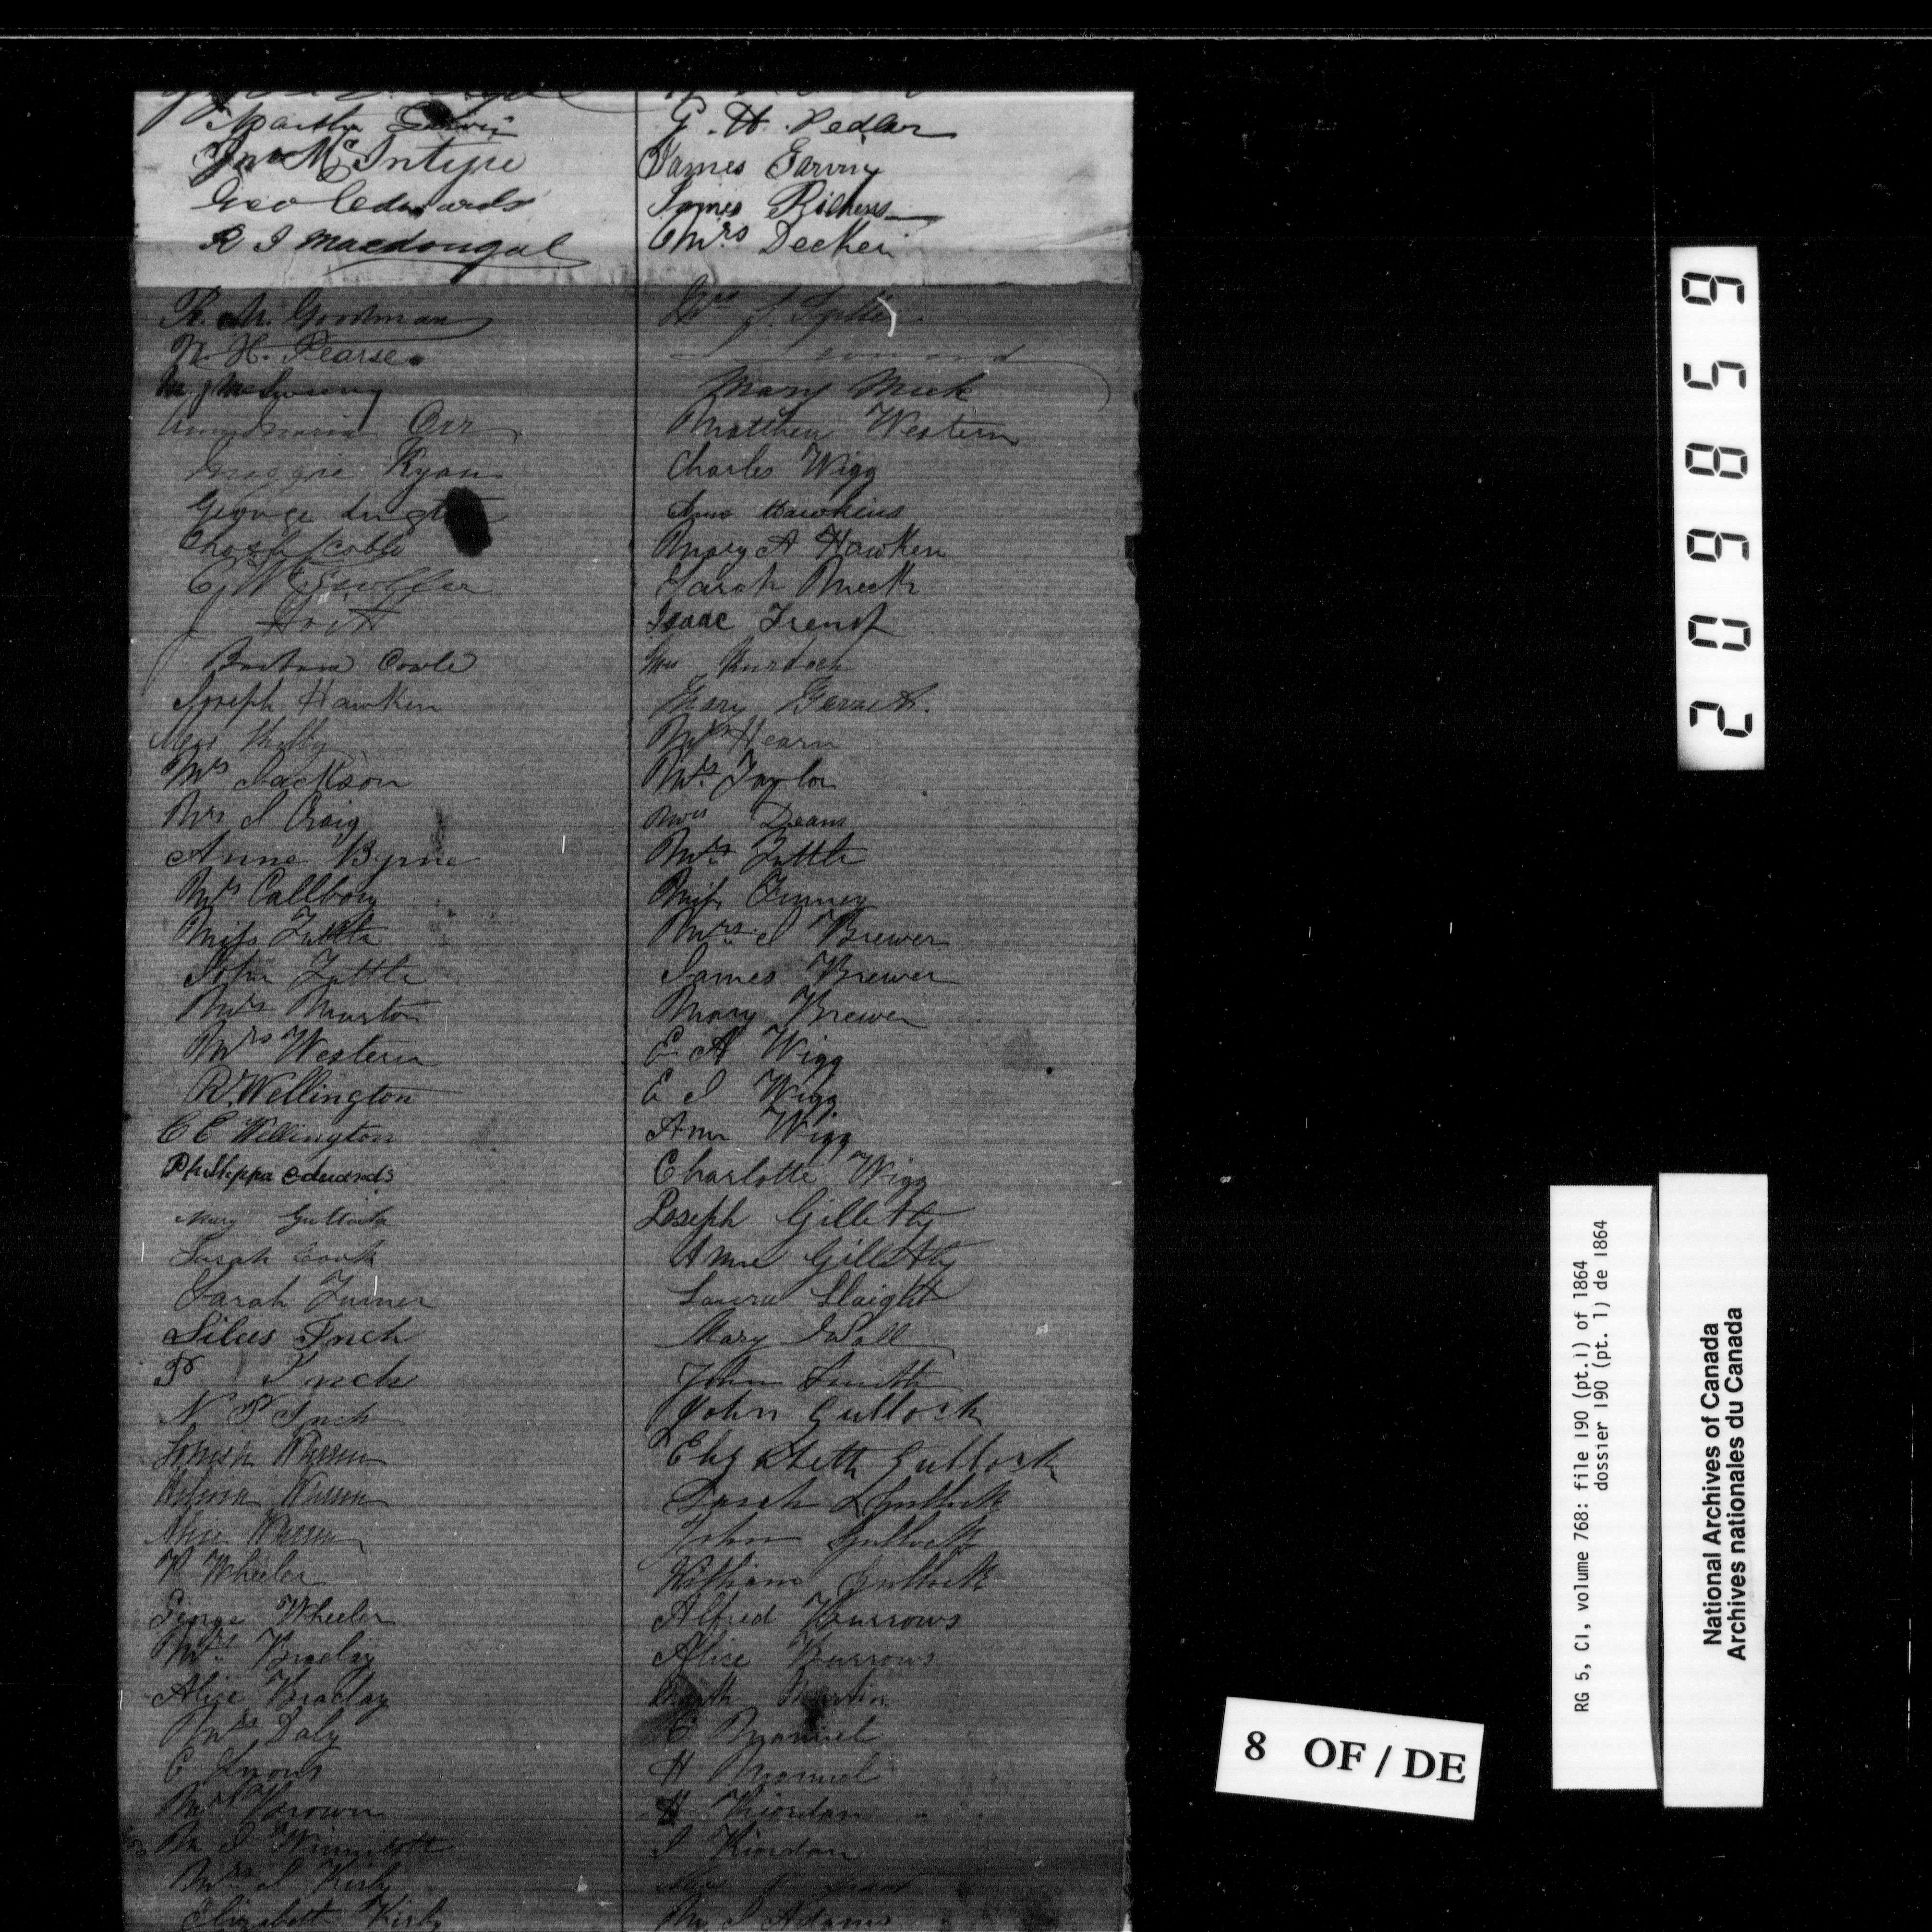 Martha Garvin
Jno McIntyre
Geo Edwards
R I Macdougal
R. M. Goodman
W. H. Pearse
Orr
Maggie Ryan
George
Chas Scoble
Barbara Cowle
Joseph Hawken
Mrs Jackson
Mrs J Craig
Anne Byrne
Mrs Callbory
Miss Tuttle
John Tuttle
Mrs Marston
Mrs Western
R. Wellington
C C Wellington
Phillippa Edwards
Mary Gullock
Sarah Cook
Sarah Turner
Silas Inch
P Inch
N P Inch
Warren
Warren
Alice Warren
P Wheeler
George Wheeler
Mrs Braclay
Alice Braclay
Mrs Daly
C Lyons
Mrs Brown
M J
Mrs J Kirby
Elizabeth Kirby
G. H. Pedlar
James Garvin
James Richens
Mrs Decker
Mrs
Mary Meek
Matthew Western
Charles Wigg
Ann Hawkins
Mary A Hawken
Sarah Meek
Isaac Trenof
Mrs Murdoch
Mary Garnet.
Mrs Hearn
Mrs Taylor
Mrs Deans
Mrs Tuttle
Miss
Mrs J Brewer
James Brewer
Mary Brewer
E A Wigg
E J Wigg
Ann Wigg
Charlotte Wigg
Joseph Gilletly
Anne Gilletly
Laura Slaight
Mary Wall
John Smith
John Gullock
Elizabeth Gullock
Sarah Gullock
John Gullock
William Gullock
Alfred Burrows
Alice Burrows
Martin
E Manuel
H Manuel
H Riordan
J Riordan
M J Adams
2 0 9 8 5 9
RG 5, C1, volume 768: file 190 (pt.1) of 1864
dossier 190 (pt. 1) de 1864
National Archives of Canada
Archives nationales du Canada
8 OF / DE